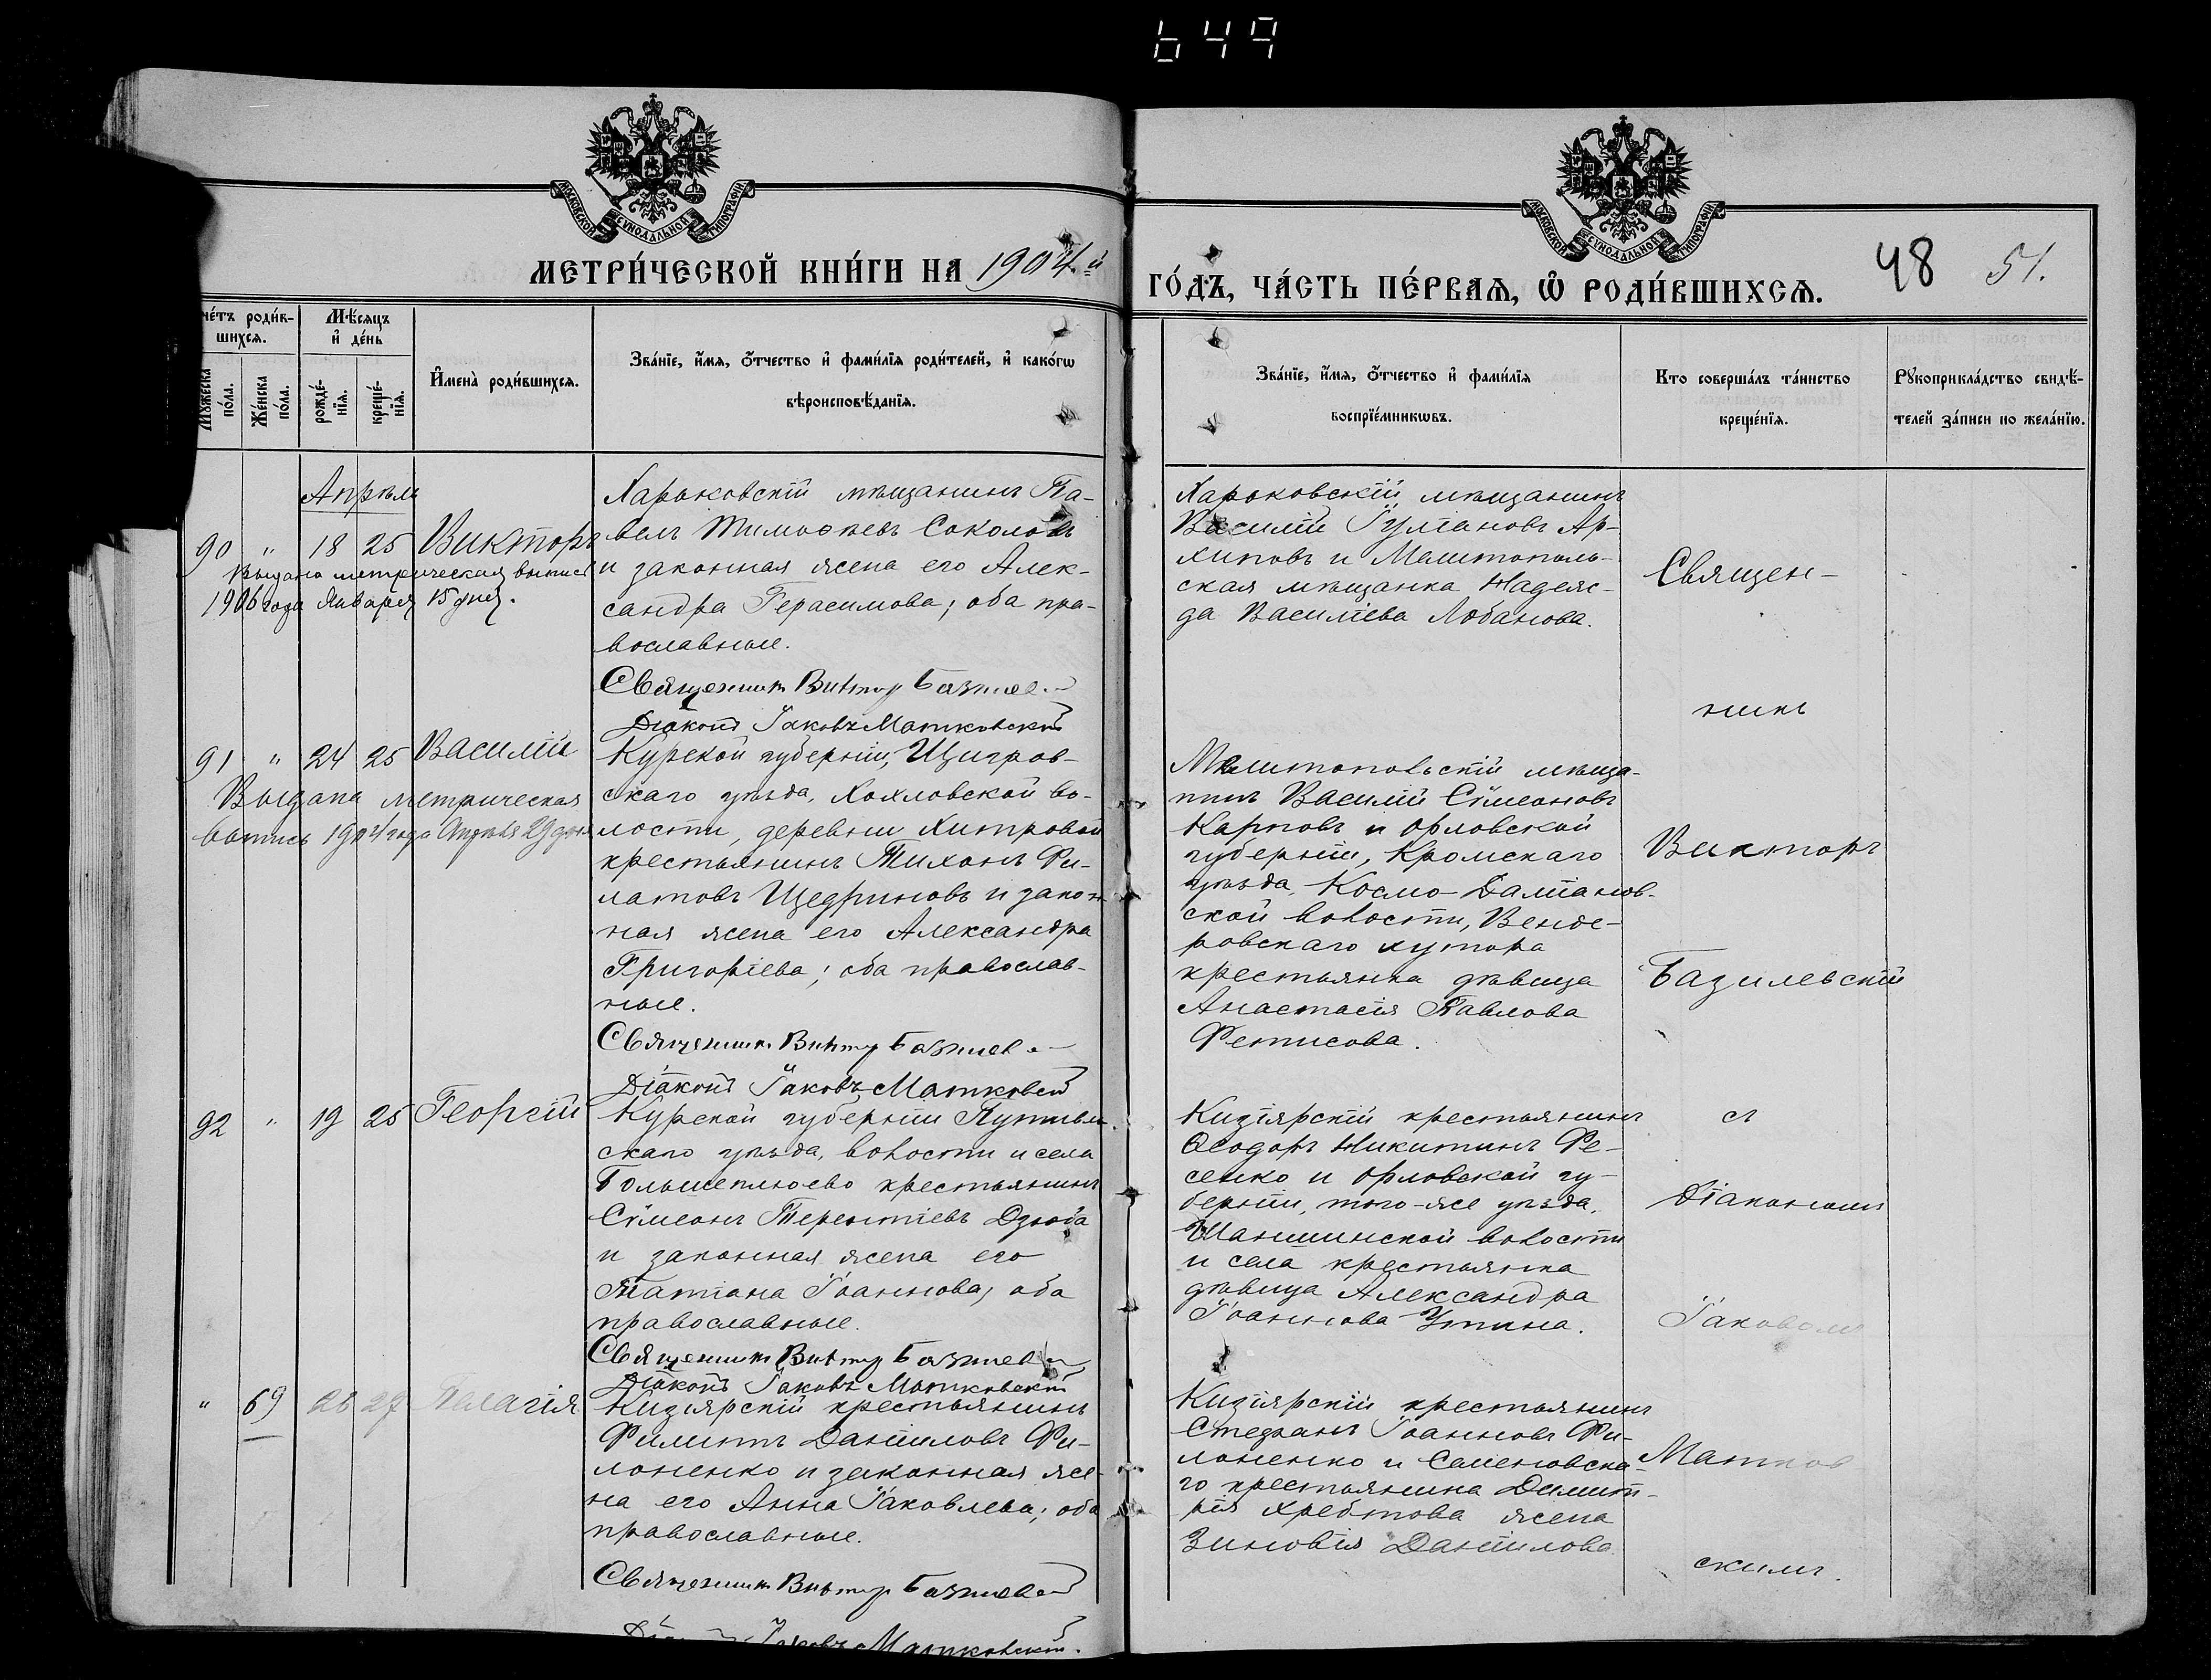 649
МОСКОВСКОЙ СѴНОДАЛЬНОЙ ТИПОГРАФІИ
МОСКОВСКОЙ СѴНОДАЛЬНОЙ ТИПОГРАФІИ
МЕТРИ́ЧЕСКОЙ КНИ́ГИ НА 1904.й
ГО́ДЪ, ЧА́СТЬ ПЕ́РВАѦ, Ѽ РОДИ́ВШИХСѦ.
48 51.
че́тъ роди́в-
шихсѧ.
Мѣ́сѧцъ
и҆ де́нь
Мꙋ́жеска по́ла.
Же́нска по́ла.
рожде́-
нїѧ.
креще́-
нїѧ.
И҆мена̀ роди́вшихсѧ.
Зва́нїе, и҆́мѧ, ѻ҆́тчество и҆ фами́лїѧ роди́телей, и҆ како́гѡ
вѣроисповѣ́данїѧ.
Зва́нїе, и҆́мѧ, ѻ҆́тчество и҆ фами́лїѧ
воспрїе́мникѡвъ.
Кто соверша́лъ та́инство
креще́нїѧ.
Рꙋкоприкла́дство свидѣ́-
телей за́писи по жела́нїю.
Апрѣль
90 " 18 25 Викторъ
Выдана метрическая выпись
1906 года Января 15 дня.
Харьковскій мѣщанинъ Па-
велъ Тимоѳеевъ Соколовъ
и законная жена его Алек-
сандра Герасимова; оба пра-
вославные.
Священникъ Викторъ
Діаконъ Іаковъ Матковскій
Харьковскій мѣщанинъ
Василій Іуліановъ Ар-
хиповъ и Мелитополь-
ская мѣщанка Надеж-
да Василіева Лобанова.
Священ-
никъ
91 " 24 25 Василій
Выдана метрическая
выпись 1904 года Апрѣля 29 дня
Курской губерніи, Щигров-
скаго уѣзда, Хохловской во-
лости, деревни Хитровой
крестьянинъ Тихонъ Фи-
латовъ Щедриновъ и закон-
ная жена его Александра
Григоріева; оба православ-
ные.
Священникъ Викторъ
Діаконъ Іаковъ Матковскій
Мелитопольскій мѣща-
нинъ Василій Сѵмеоновъ
Карповъ и Орловской
губерніи, Кромскаго
уѣзда, Космо-Даміанов-
ской волости, Венде-
ровскаго хутора
крестьянка дѣвица
Анастасія Павлова
Фетисова.
Викторъ
Базилевскій
92 " 19 25 Георгій
Курской губерніи Путивль-
скаго уѣзда, волости и села
Большеплюево крестьянинъ
Сѵмеонъ Терентіевъ Дзюба
и законная жена его
Татіана Іоаннова; оба
православные.
Священникъ Викторъ
Діаконъ Іаковъ Матковскій
Кизіярскій крестьянинъ
Ѳеодоръ Никитинъ Фе-
сенко и Орловской гу-
берніи, того-же уѣзда,
волости
и села крестьянка
дѣвица Александра
Іоаннова Утина.
съ
Діакономъ
Іаковомъ
" 69 26 27 Пелагія
Кизіярскій крестьянинъ
Филиппъ Даніиловъ Фи-
лоненко и законная же-
на его Анна Іаковлева; оба
православные.
Священникъ Викторъ
Діаконъ Іаковъ Матковскій.
Кизіярскій крестьянинъ
Стефанъ Іоанновъ Фи-
лоненко и Семеновска-
го крестьянина Димит-
рія Хребтова жена
Зиновія Даніилова
Матков
скимъ.